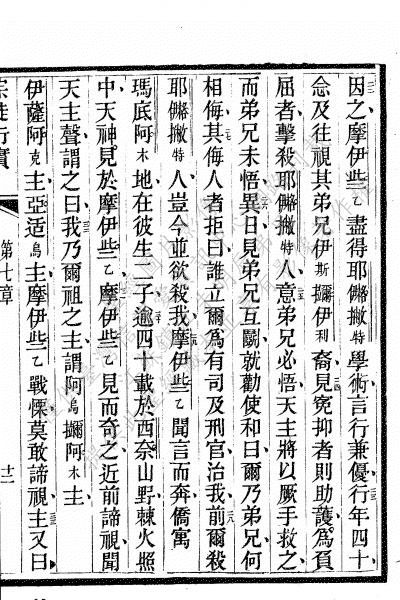 因之摩伊些乙盡得耶𱎼撇特學術言行兼優行年四十
念及往視其弟兄伊斯𤫊伊利裔見寃抑者則助護爲負
屈者擊殺耶𱎼撇特人意弟兄必悟天主將以厥手救之
而弟兄未悟異日見弟兄互鬭就勸使和曰爾乃弟兄何
相侮其侮人者拒曰誰立爾爲有司及刑官治我前爾殺
耶𱎼撇特人豈今並欲殺我摩伊些乙聞言而奔僑寓
瑪底阿木地在彼生二子逾四十載於西奈山野棘火熖
中天神見於摩伊些乙摩伊些乙見而奇之近前諦視聞
天主聲謂之曰我乃爾祖之主謂阿烏阿木主
伊薩阿克主亞适烏主摩伊些乙戰慄莫敢諦視主又曰
宗徒行實
第七章
十二